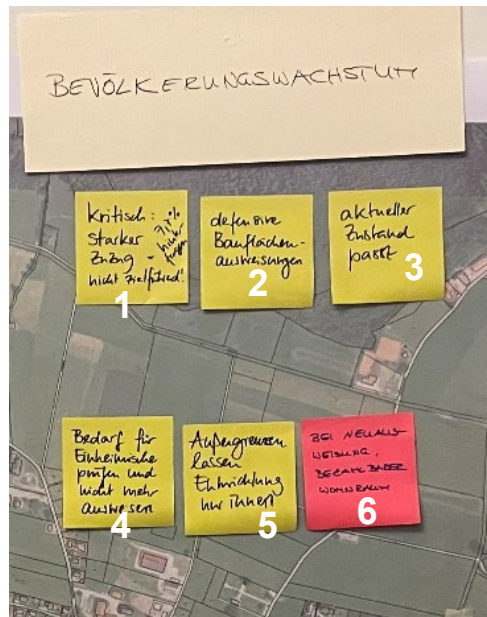 BEVÖLKERUNGSWACHSTUM
Kritisch:
starker
Zuzug -
nicht zielführend!
1
defensive
Bauflächen-
ausweisungen
2
aktueller
Zustand
passt
3
Bedarf für
Einheimische
prüfen und
nicht mehr
ausweisen
4
Außengrenzen
lassen
Entwicklung
nur innen
5
BEI NEUAUS-
WEISUNG,
BEZAHLBARER
WOHNRAUM
6